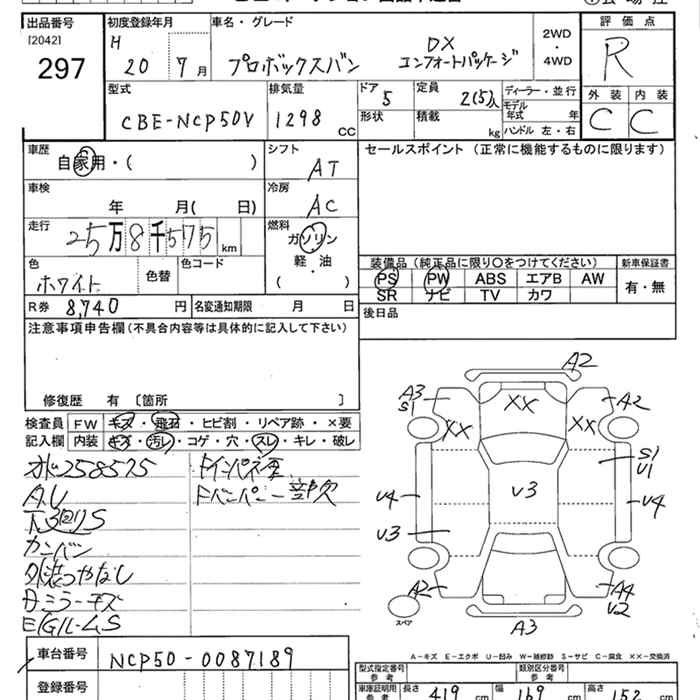 出品番号
[2042]
297
初度登録年月
H 20 7月
車名・グレード
プロボックスバン
DX
コンフォートパッケージ
2WD
・
4WD
評価点
R
外装 内装
C C
型式
CBE-NCP50V
排気量
1298 CC
ドア
5
定員
2(5)人
形状
積載
kg
ディーラー・並行
モデル年式 年
ハンドル 左・右
車歴
自家用・( )
シフト
AT
セールスポイント(正常に機能するものに限ります)
車検
年 月( 日)
冷房
AC
走行
25万8千575km
燃料
ガソリン
・
軽油
( )
色
ホワイト
色替
色コード
装備品(純正品に限り〇をつけてください)
新車保証書
PS PW ABS エアB AW
SR ナビ TV カワ
有・無
R券 8,740 円
名変通知期限 月 日
後日品
注意事項申告欄(不具合内容等は具体的に記入して下さい)
修復歴 有〔箇所 〕
検査員記入欄
FW キズ・飛石・ヒビ割・リペア跡・×要
内装 キズ・汚レ・コゲ・穴・スレ・キレ・破レ
258575
A.U
下回りS
カンバン
外装つやなし
ミラーキズ
E/GルームS
インパネ
Fバンパー一部欠
A2
A3
S1
XX
A2
XX
XX
S1
U1
U4
U3
U4
U3
A2
A4
U2
A3
スペア
A-キズ E-エクボ U-凹み W-補修跡 S-サビ C-腐食 XX-交換済
車台番号
NCP50-0087189
登録番号
型式指定番号
類別区分番号
車庫証明用参考
長さ 419 cm
幅 169 cm
高さ 152 cm